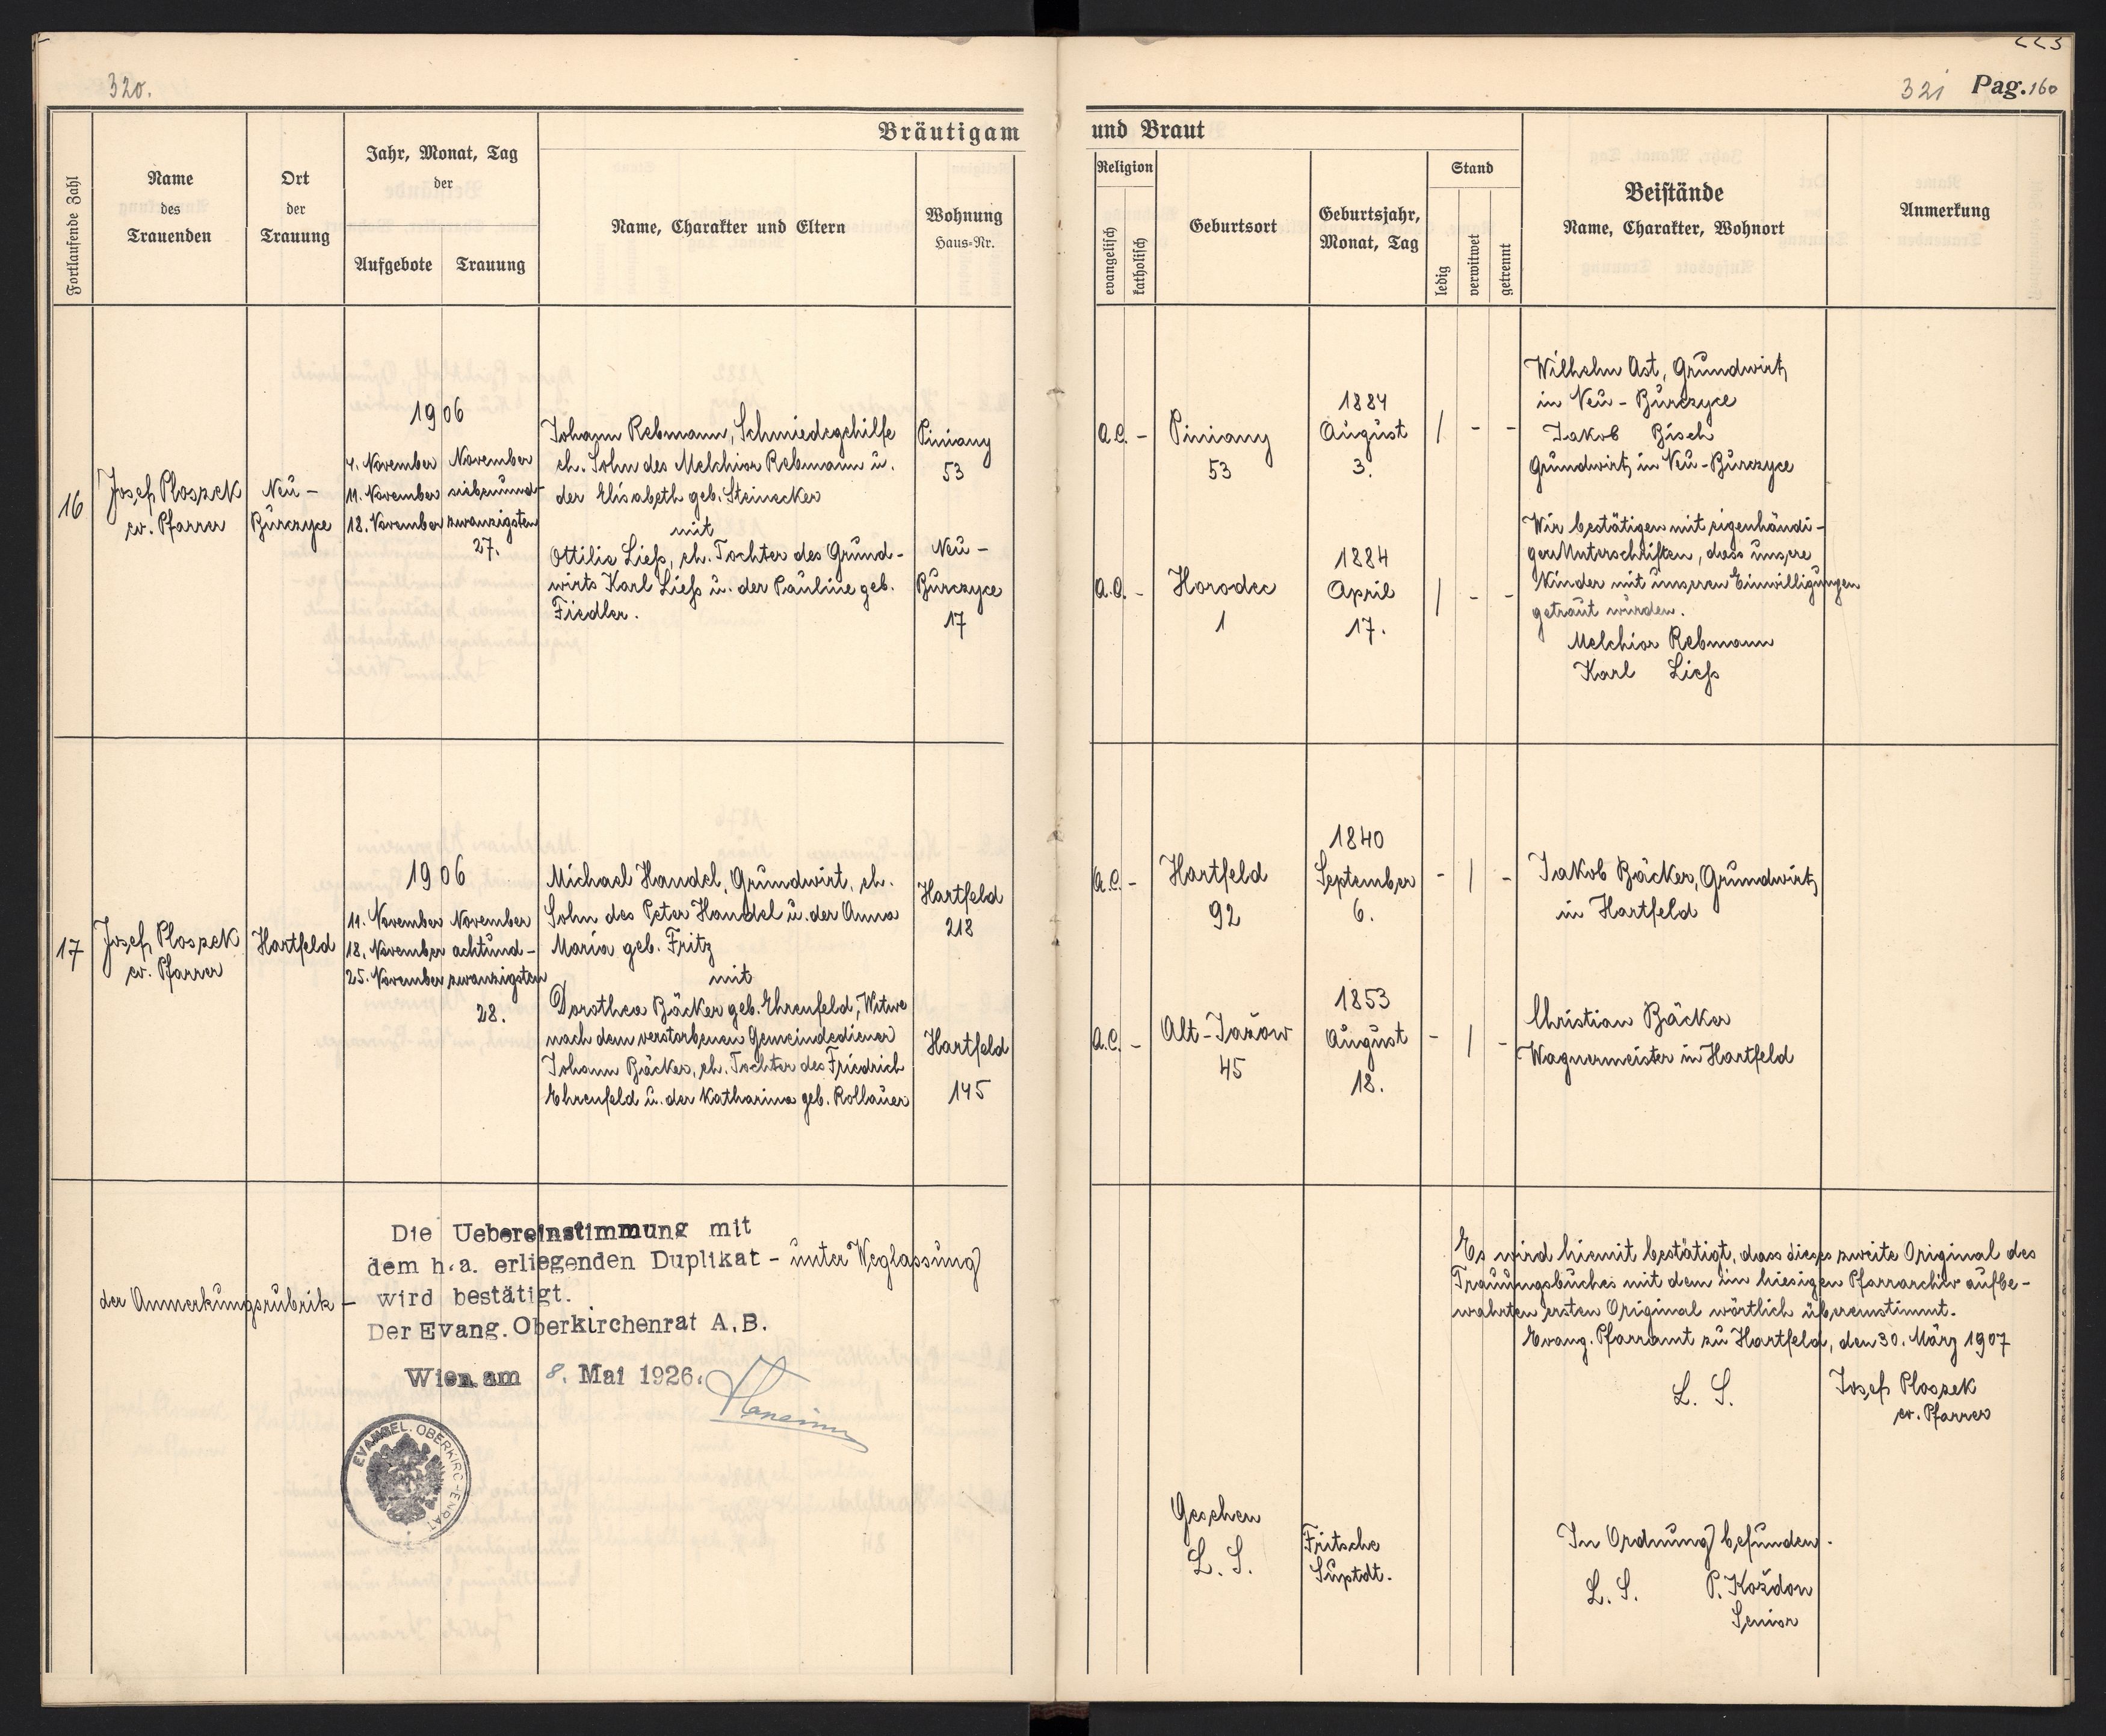 320.
321 Pag. 160
Bräutigam
und Braut
Fortlaufende Zahl
Name
des
Trauenden
Ort
der
Trauung
Jahr, Monat, Tag
der
Aufgebote
Trauung
Name, Charakter und Eltern
Wohnung
Haus=Nr.
Religion
evangelisch
katholisch
Geburtsort
Geburtsjahr,
Monat, Tag
Stand
ledig
verwitwet
getrennt
Beistände
Name, Charakter, Wohnort
Anmerkung
16
Josef Ploszek
ev. Pfarrer
Neu -
Burczyce
1906
4. November
11. November
18. November
November
siebenund-
zwanzigsten
27.
Johann Rebmann, Schmiedegehilfe
eh. Sohn des Melchior Rebmann u.
der Elisabeth geb. Steinecker
mit
Ottilie Liess, eh. Tochter des Grund-
wirts Karl Liess u. der Pauline geb.
Fiedler.
Piniany
53
Neu -
Burczyce
17
A.C. -
Piniany
53
1884
August
3.
/ - -
A.C. -
Horodec
1
1884
April
17.
/ - -
Wilhelm Ast, Grundwirt,
in Neu-Burczyce
Jakob Bisch
Grundwirt, in Neu-Burczyce
Wir bestätigen mit eigenhändi-
gen Unterschriften, dass unsere
Kinder mit unseren Einwilligungen
getraut wurden.
Melchior Rebmann
Karl Liess
17
Josef Ploszek
ev. Pfarrer
Hartfeld
1906
11. November
18. November
25. November
November
achtund-
zwanzigsten
28.
Michael Handel, Grundwirt, eh.
Sohn des Peter Handel u. der Anna
Maria geb. Fritz
mit
Dorothea Bäcker geb. Ehrenfeld, Witwe
nach dem verstorbenen Gemeindediener
Johann Bäcker, eh. Tochter des Friedrich
Ehrenfeld u. der Katharina geb. Rollauer
Hartfeld
218
Hartfeld
145
A.C. -
Hartfeld
92
1840
September
6.
- / -
A.C. -
Alt-Jażow
45
1853
August
18.
- / -
Jakob Bäcker, Grundwirt,
in Hartfeld
Christian Bäcker
Wagnermeister in Hartfeld
Die Uebereinstimmung mit
dem h.a. erliegenden Duplikat - unter Weglassung
der Anmerkungsrubrik - wird bestätigt.
Der Evang. Oberkirchenrat A.B.
Wien am 8. Mai 1926.
EVANGEL. OBERKIRCHENRAT
Es wird hiemit bestätigt, dass dieses zweite Original des
Trauungsbuches mit dem im hiesigen Pfarrarchiv aufbe-
wahrten ersten Original wörtlich übereinstimmt.
Evang. Pfarramt zu Hartfeld, den 30. März 1907
L. S.
Josef Ploszek
ev. Pfarrer
Gesehen
L. S.
Fritsche
Suptdt.
In Ordnung befunden.
L. S.
P. Kożdon
Senior